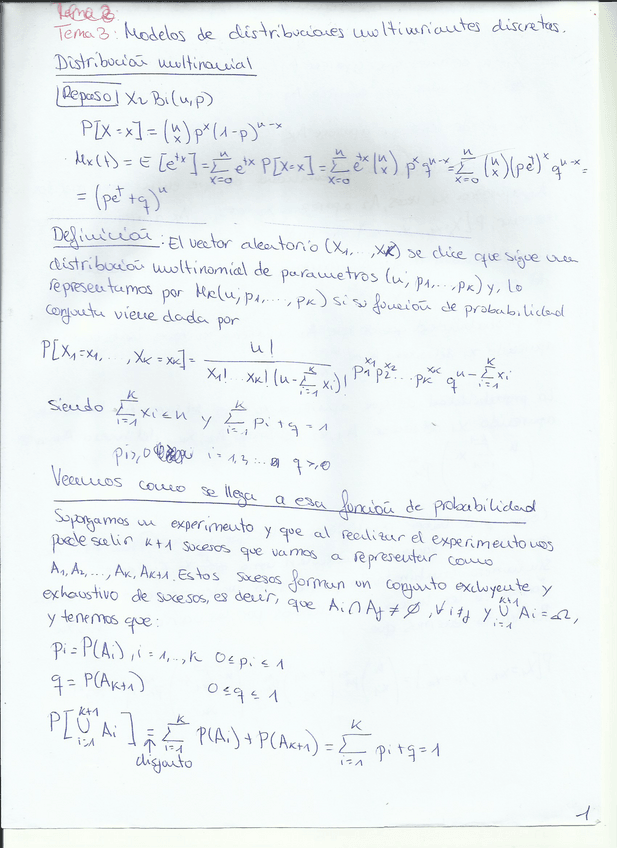 Tema 2
Tema 3: Modelos de distribuciones multivariantes discretas.
Distribución multinomial
Repaso X~Bi(n,p)
P[X=x] = (n x) p^x (1-p)^{n-x}
Mx(t) = E[e^{tx}] = ∑_{x=0}^{n} e^{tx} P[X=x] = ∑_{x=0}^{n} e^{tx} (n x) p^x q^{n-x} = ∑_{x=0}^{n} (n x)(pe^t)^x q^{n-x} =
= (pe^t + q)^n
Definición: El vector aleatorio (X1,..,XK) se dice que sigue una
distribución multinomial de parametros (n; p1,...,pK) y, lo
representamos por MK(n; p1,...,pK) si su función de probabilidad
conjunta viene dada por
P[X1=x1,..., XK=xK] = n! / (x1!...xK!(n-∑_{i=1}^{K} xi)!) p1^{x1} p2^{x2}...pK^{xK} q^{n-∑_{i=1}^{K} xi}
siendo ∑_{i=1}^{K} xi ≤ n y ∑_{i=1}^{K} pi + q = 1
pi ≥ 0 i = 1,2,... q ≥ 0
Veamos como se llega a esa función de probabilidad
Supongamos un experimento y que al realizar el experimento nos
puede salir K+1 sucesos que vamos a representar como
A1, A2,..., AK, AK+1. Estos sucesos forman un conjunto excluyente y
exhaustivo de sucesos, es decir, que Ai ∩ Aj ≠ ∅, ∀ i≠j y ∪_{i=1}^{K+1} Ai = Ω,
y tenemos que:
pi = P(Ai), i = 1,..,K 0 ≤ pi ≤ 1
q = P(AK+1) 0 ≤ q ≤ 1
P[∪_{i=1}^{K+1} Ai] = ∑_{i=1}^{K} P(Ai) + P(AK+1) = ∑_{i=1}^{K} pi + q = 1
↑
disjunto
1